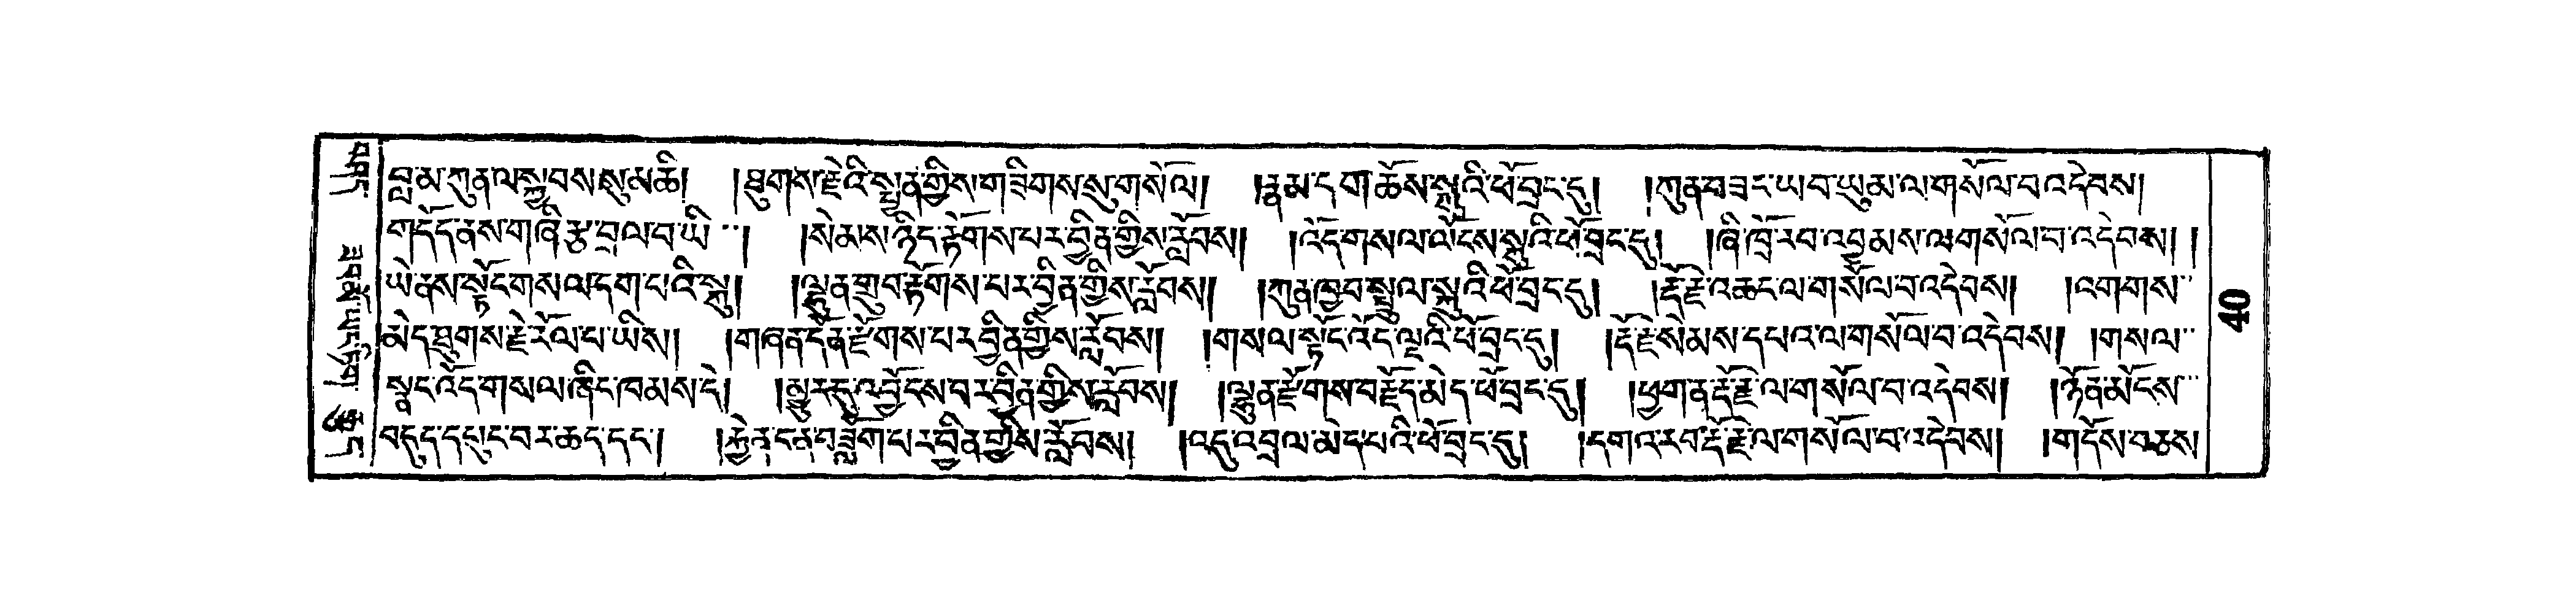 བླ་མ་ཀུན་ལ་སྐྱབས་སུ་མཆི། །ཐུགས་རྗེའི་སྤྱན་གྱིས་གཟིགས་སུ་གསོལ། །རྣམ་དག་ཆོས་སྐུའི་ཕོ་བྲང་དུ། །ཀུན་བཟང་ཡབ་ཡུམ་ལ་གསོལ་བ་འདེབས།
གདོད་ནས་གཞི་རྩ་བྲལ་བ་ཡི་ །སེམས་ཉིད་རྟོགས་པར་བྱིན་གྱིས་རློབས། །འོད་གསལ་ལོངས་སྐུའི་ཕོ་བྲང་དུ། །ཞི་ཁྲོ་རབ་འབྱམས་ལ་གསོལ་བ་འདེབས། །
ཡེ་ནས་སྟོང་གསལ་དག་པའི་སྐུ། །ལྷུན་གྲུབ་རྟོགས་པར་བྱིན་གྱིས་རློབས། །ཀུན་ཁྱབ་སྤྲུལ་སྐུའི་ཕོ་བྲང་དུ། །རྡོ་རྗེ་འཆང་ལ་གསོལ་བ་འདེབས། །འགགས་
མེད་ཐུགས་རྗེ་རོལ་པ་ཡིས། །གཞན་དོན་རྫོགས་པར་བྱིན་གྱིས་རློབས། །གསལ་སྟོང་འོད་ལྔའི་ཕོ་བྲང་དུ། །རྡོ་རྗེ་སེམས་དཔའ་ལ་གསོལ་བ་འདེབས། །གསལ་
སྣང་འོད་གསལ་ཞིང་ཁམས་དེ། །མྱུར་དུ་འབྱོངས་བར་བྱིན་གྱིས་རློབས། །ལྷུན་རྫོགས་བརྗོད་མེད་ཕོ་བྲང་དུ། །ཕྱག་ན་རྡོ་རྗེ་ལ་གསོལ་བ་འདེབས། །ཉོན་མོངས་
བདུད་དཔུང་བར་ཆད་དང་། །རྐྱེན་ངན་བཟློག་པར་བྱིན་གྱིས་རློབས། །འདུ་འབྲལ་མེད་པའི་ཕོ་བྲང་དུ། །དགའ་རབ་རྡོ་རྗེ་ལ་གསོལ་བ་འདེབས། །གདོས་བཅས